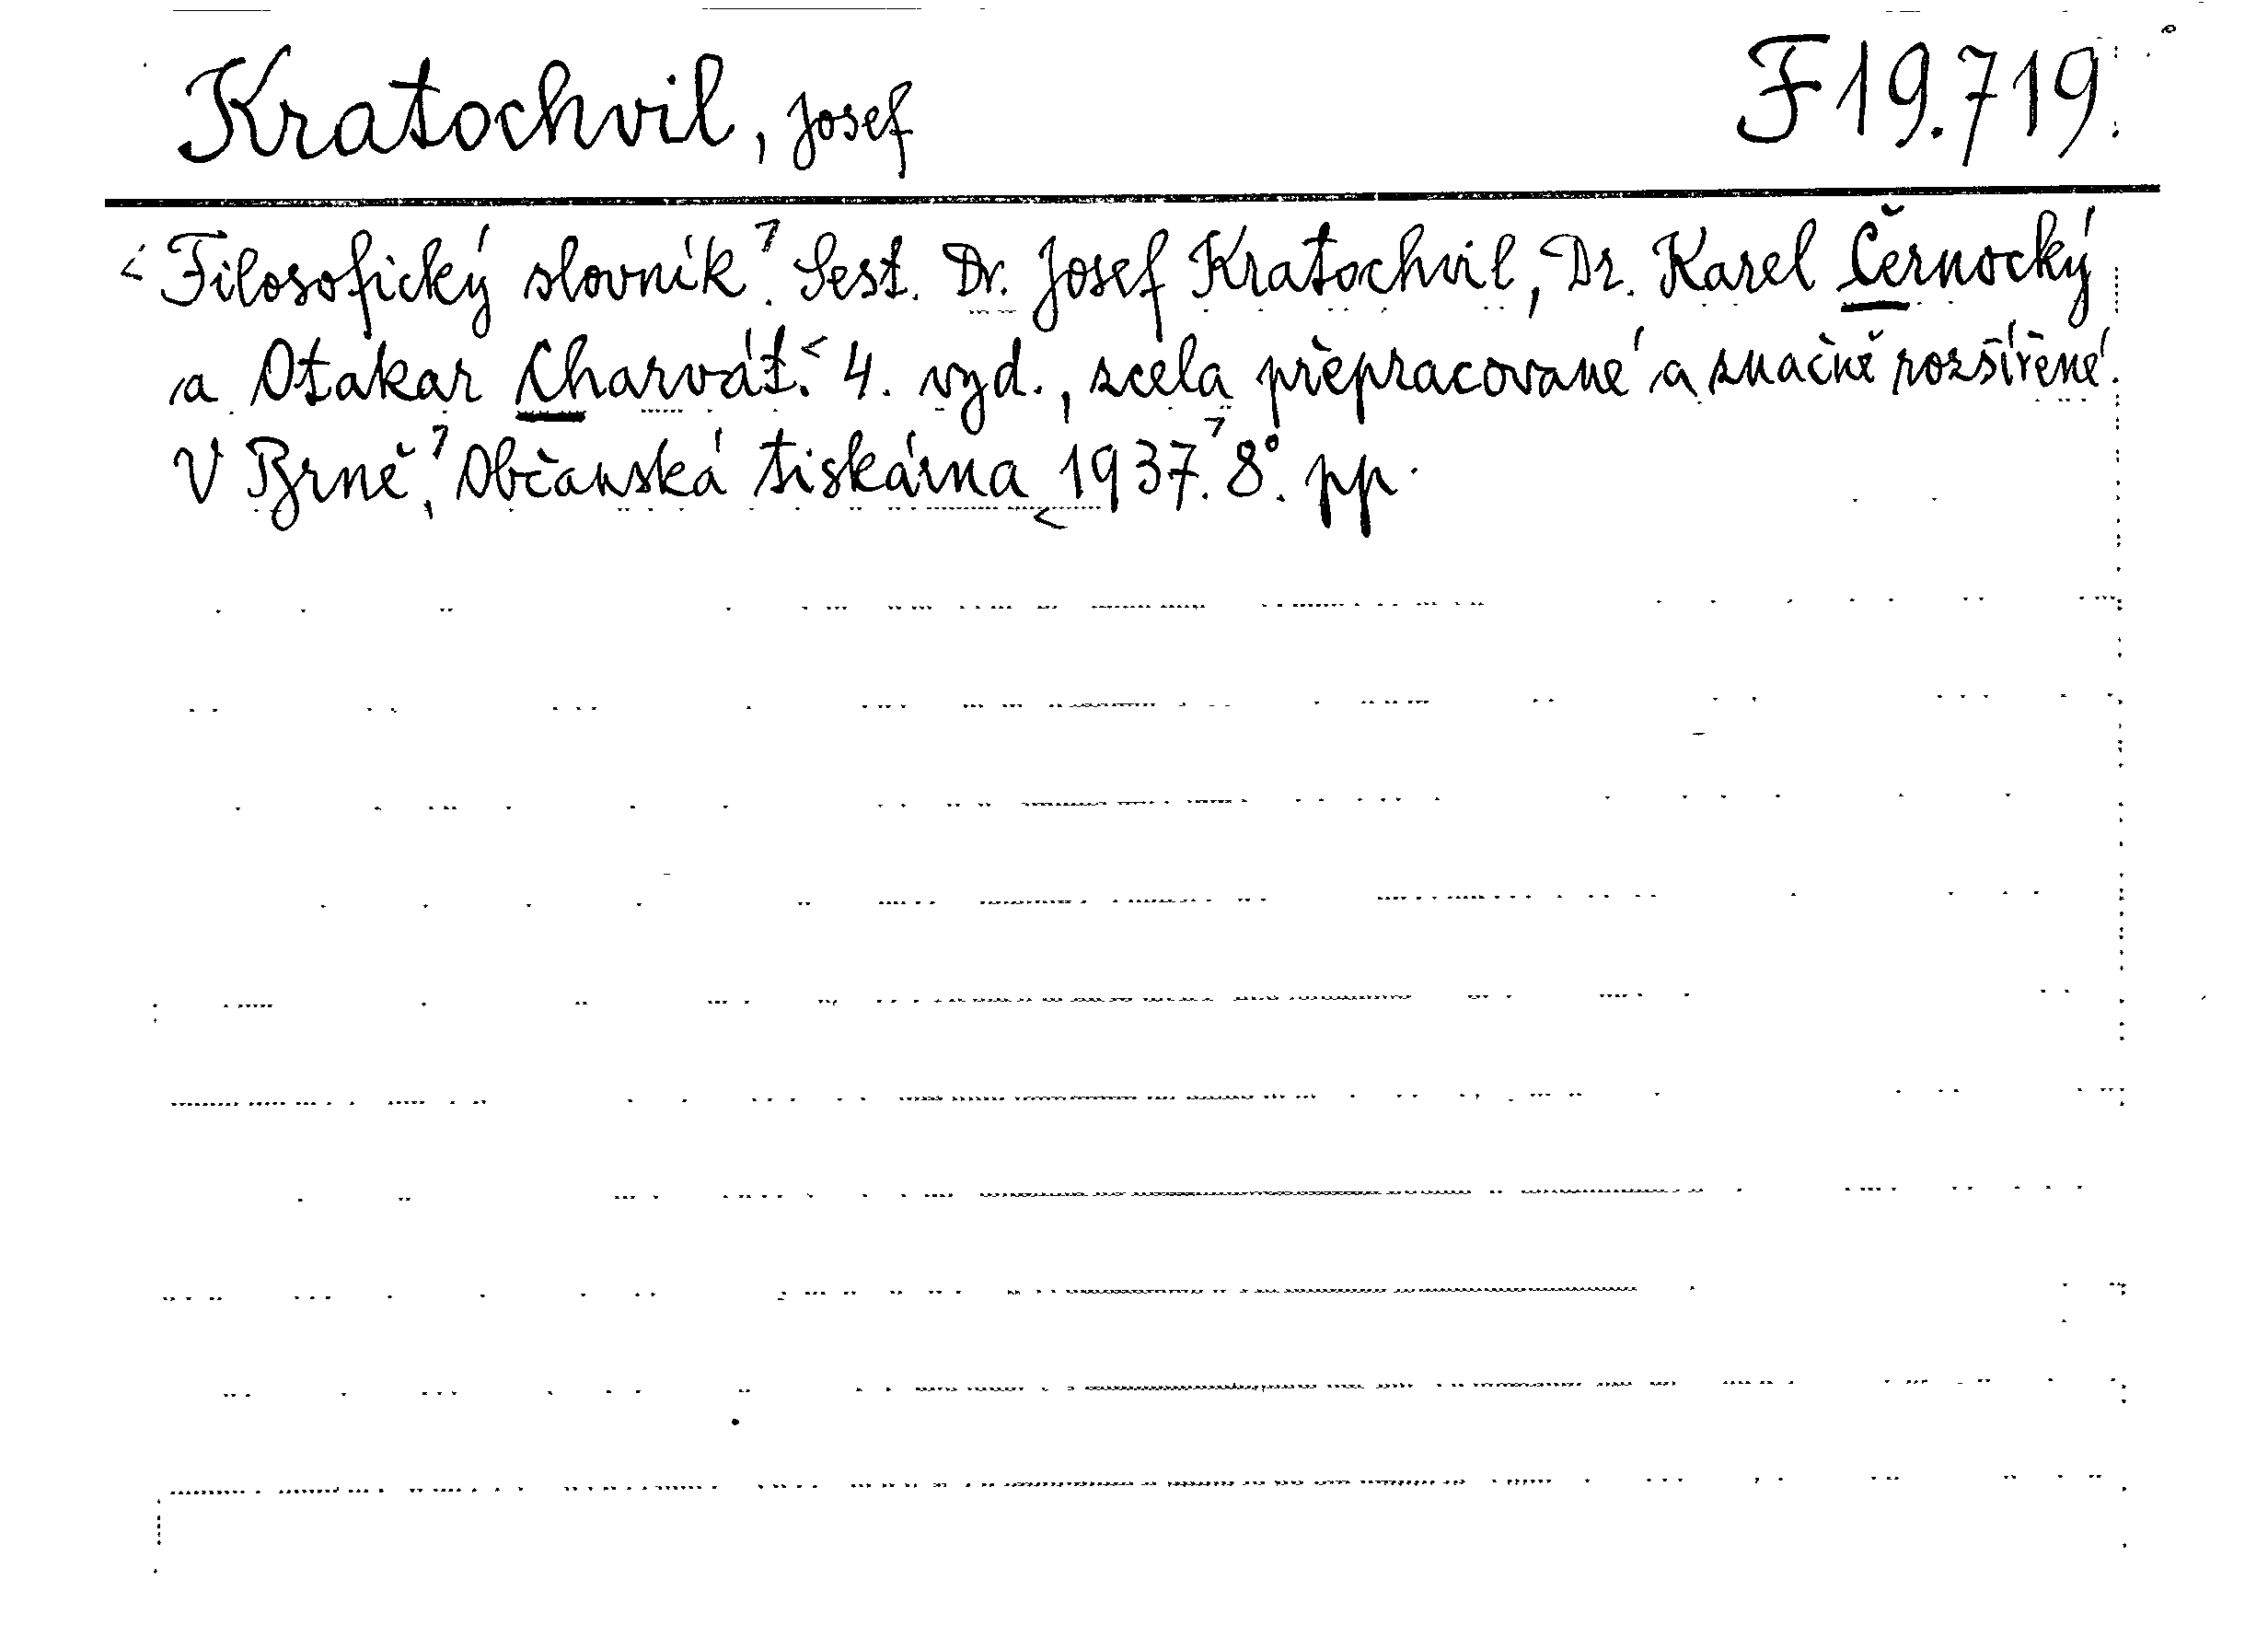 Kratochvil, Josef F 19.719
<Filosofický slovník.⁷ Sest. Dr. Josef Kratochvil, Dr. Karel Černocký
a Otakar Charvát.< 4. vyd., zcela přepracované a značně rozšířené.
V Brně,⁷ Občanská tiskárna < 1937.⁷ 8°. pp.